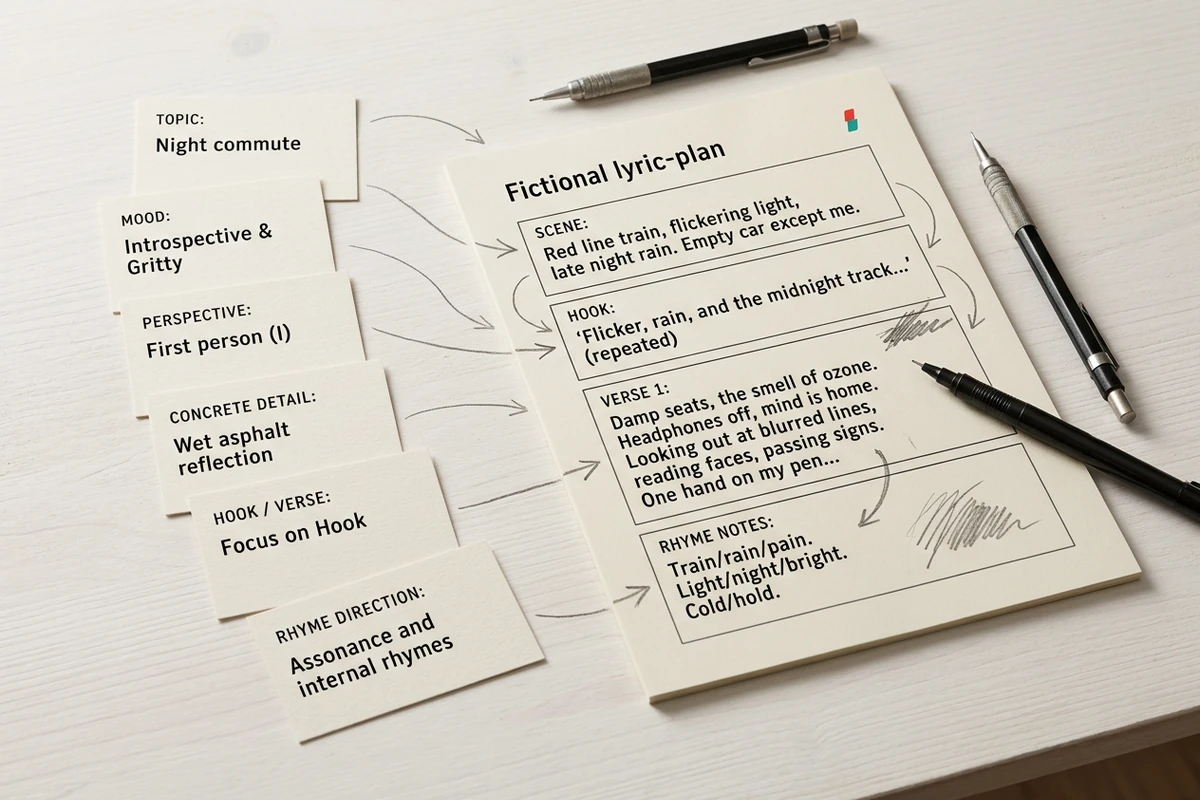 TOPIC:
Night commute
MOOD:
Introspective &
Gritty
PERSPECTIVE:
First person (I)
CONCRETE DETAIL:
Wet asphalt
reflection
HOOK / VERSE:
Focus on Hook
RHYME DIRECTION:
Assonance and
internal rhymes
Fictional lyric-plan
SCENE:
Red line train, flickering light,
late night rain. Empty car except me.
HOOK:
‘Flicker, rain, and the midnight track...’
(repeated)
VERSE 1:
Damp seats, the smell of ozone.
Headphones off, mind is home.
Looking out at blurred lines,
reading faces, passing signs.
One hand on my pen...
RHYME NOTES:
Train/rain/pain.
Light/night/bright.
Cold/hold.